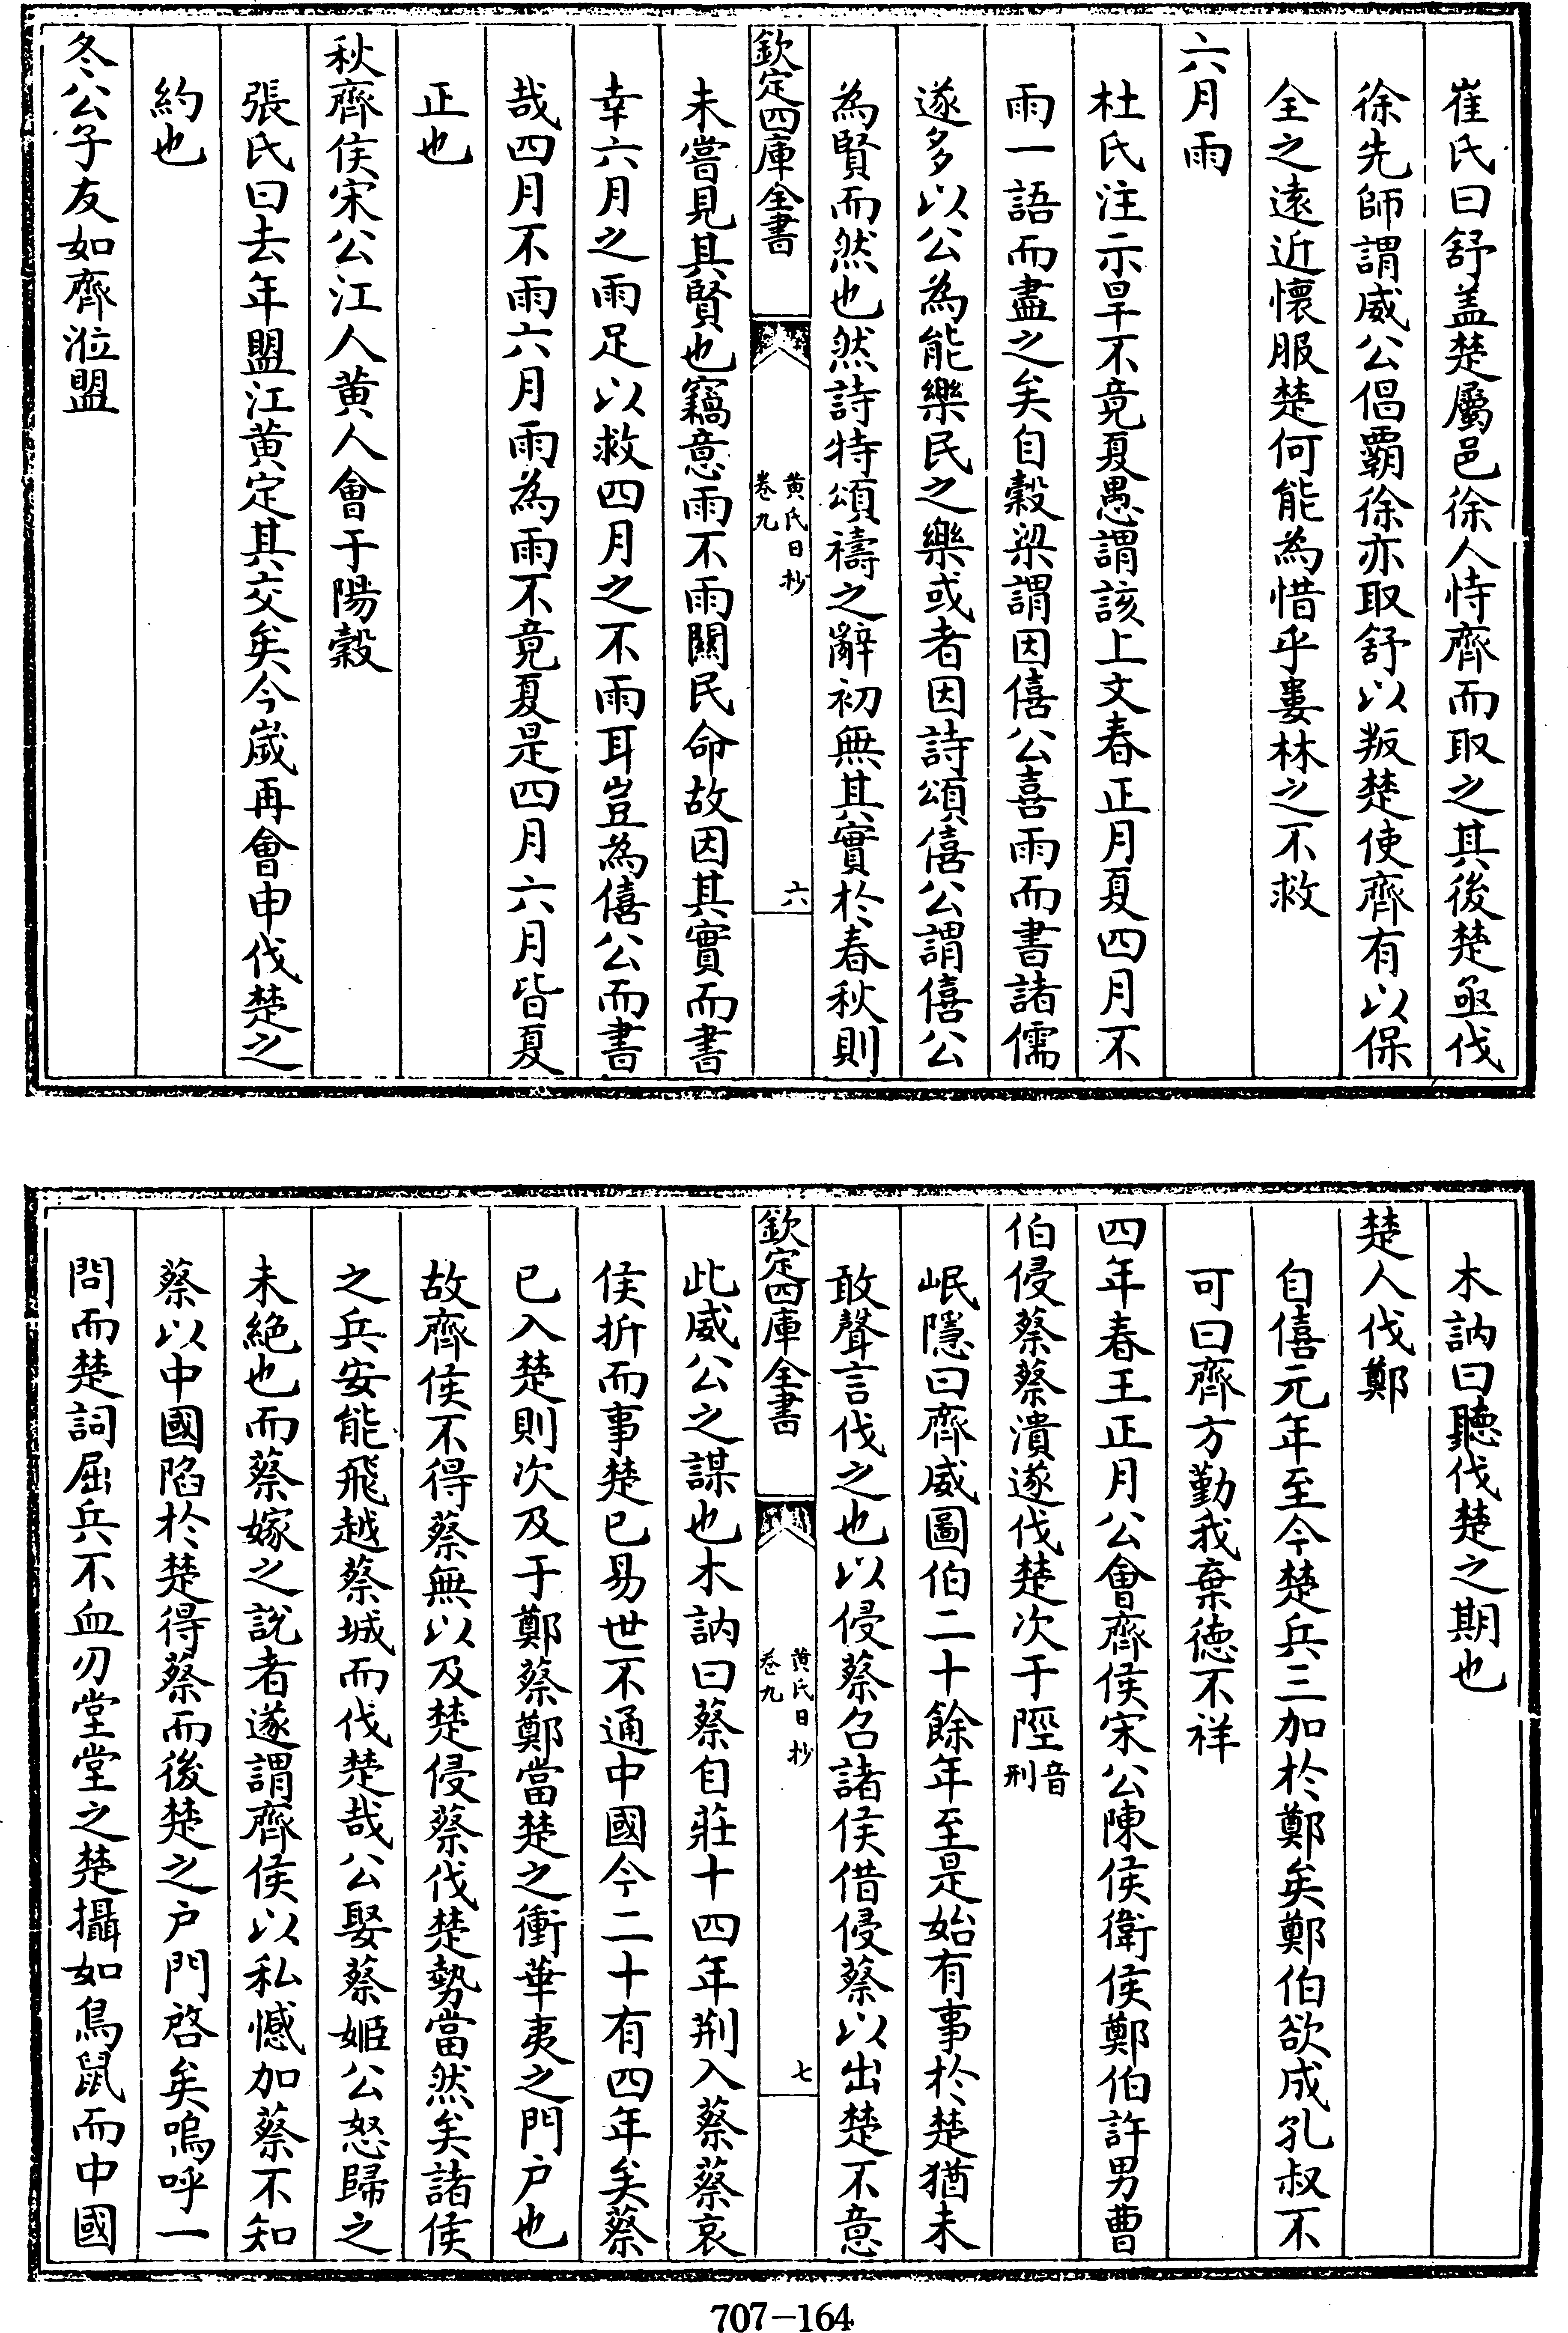 崔氏曰舒盖楚屬邑徐人恃齊而取之其後楚亟伐
徐先師謂威公倡覇徐亦取舒以叛楚使齊有以保
全之遠近懷服楚何能為惜乎婁林之不救
六月雨
杜氏注示旱不竟夏愚謂該上文春正月夏四月不
雨一語而盡之矣自穀梁謂因僖公喜雨而書諸儒
遂多以公為能樂民之樂或者因詩頌僖公謂僖公
為賢而然也然詩特頌禱之辭初無其實於春秋則
欽定四庫全書
黄氏日抄
卷九
六
未嘗見其賢也竊意雨不雨關民命故因其實而書
幸六月之雨足以救四月之不雨耳豈為僖公而書
哉四月不雨六月雨為雨不竟夏是四月六月皆夏
正也
秋齊侯宋公江人黄人會于陽穀
張氏曰去年盟江黄定其交矣今歳再會申伐楚之
約也
冬公子友如齊涖盟
木訥曰聽伐楚之期也
楚人伐鄭
自僖元年至今楚兵三加於鄭矣鄭伯欲成孔叔不
可曰齊方勤我棄徳不祥
四年春王正月公會齊侯宋公陳侯衛侯鄭伯許男曹
伯侵蔡蔡潰遂伐楚次于陘音刑
岷隱曰齊威圖伯二十餘年至是始有事於楚猶未
敢聲言伐之也以侵蔡召諸侯借侵蔡以出楚不意
欽定四庫全書
黄氏日抄
卷九
七
此威公之謀也木訥曰蔡自莊十四年荆入蔡蔡哀
侯折而事楚已易世不通中國今二十有四年矣蔡
已入楚則次及于鄭蔡鄭當楚之衝華夷之門户也
故齊侯不得蔡無以及楚侵蔡伐楚勢當然矣諸侯
之兵安能飛越蔡城而伐楚哉公娶蔡姬公怒歸之
未絶也而蔡嫁之説者遂謂齊侯以私憾加蔡不知
蔡以中國陷於楚得蔡而後楚之户門啓矣嗚呼一
問而楚詞屈兵不血刃堂堂之楚攝如鳥鼠而中國
707-164